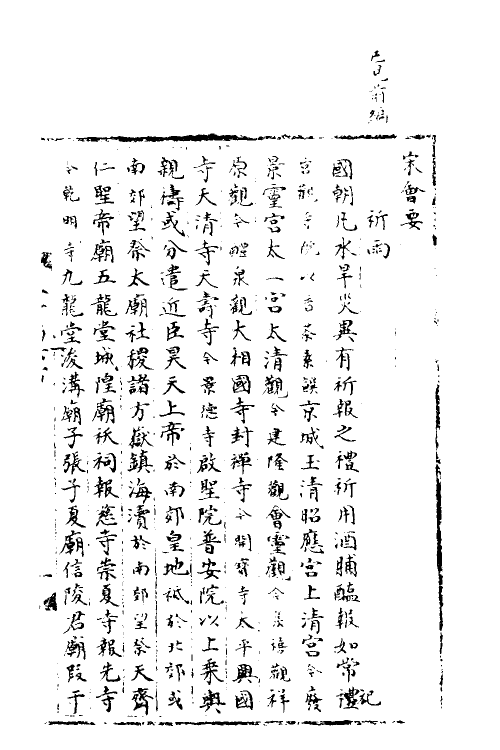 已見前編
宋會要
祈雨
國朝凡水旱災異有祈報之禮祈用酒脯醢報如常禮祀
宮觀寺院以香茶素饌京城玉清昭應宮上清宮今廢
景靈宮太一宮太清觀今建隆觀會靈觀今集禧觀祥
源觀今醴泉觀大相國寺封禪寺今開寶寺太平興國
寺天清寺天壽寺今景德寺啟聖院普安院以上乘輿
親禱或分遣近臣昊天上帝於南郊皇地祇於北郊或
南郊望祭太廟社稷諸方嶽鎮海瀆於南郊望祭天齊
仁聖帝廟五龍堂城隍廟祅祠報慈寺崇夏寺報先寺
今乾明寺九龍堂浚溝廟子張子夏廟信陵君廟段干